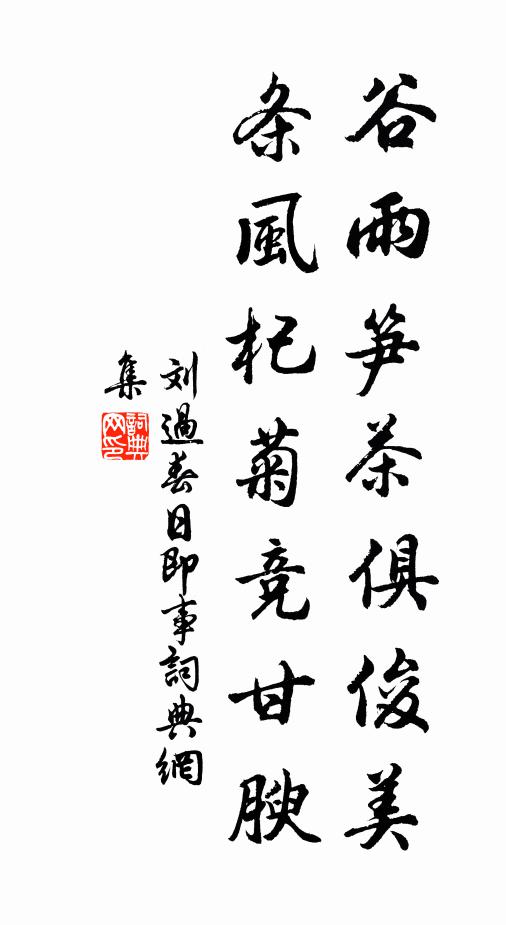 谷雨笋茶俱俊美
条風杞菊竞甘腴
刘過春日即事詞典網
集
詞典
网印